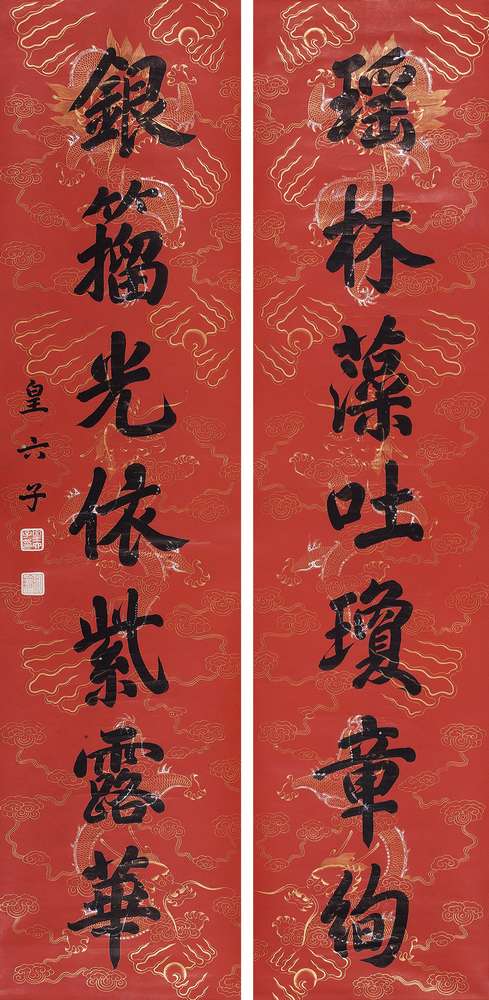 瑶林藻吐瓊章絢
銀籀光依紫露華
皇六子